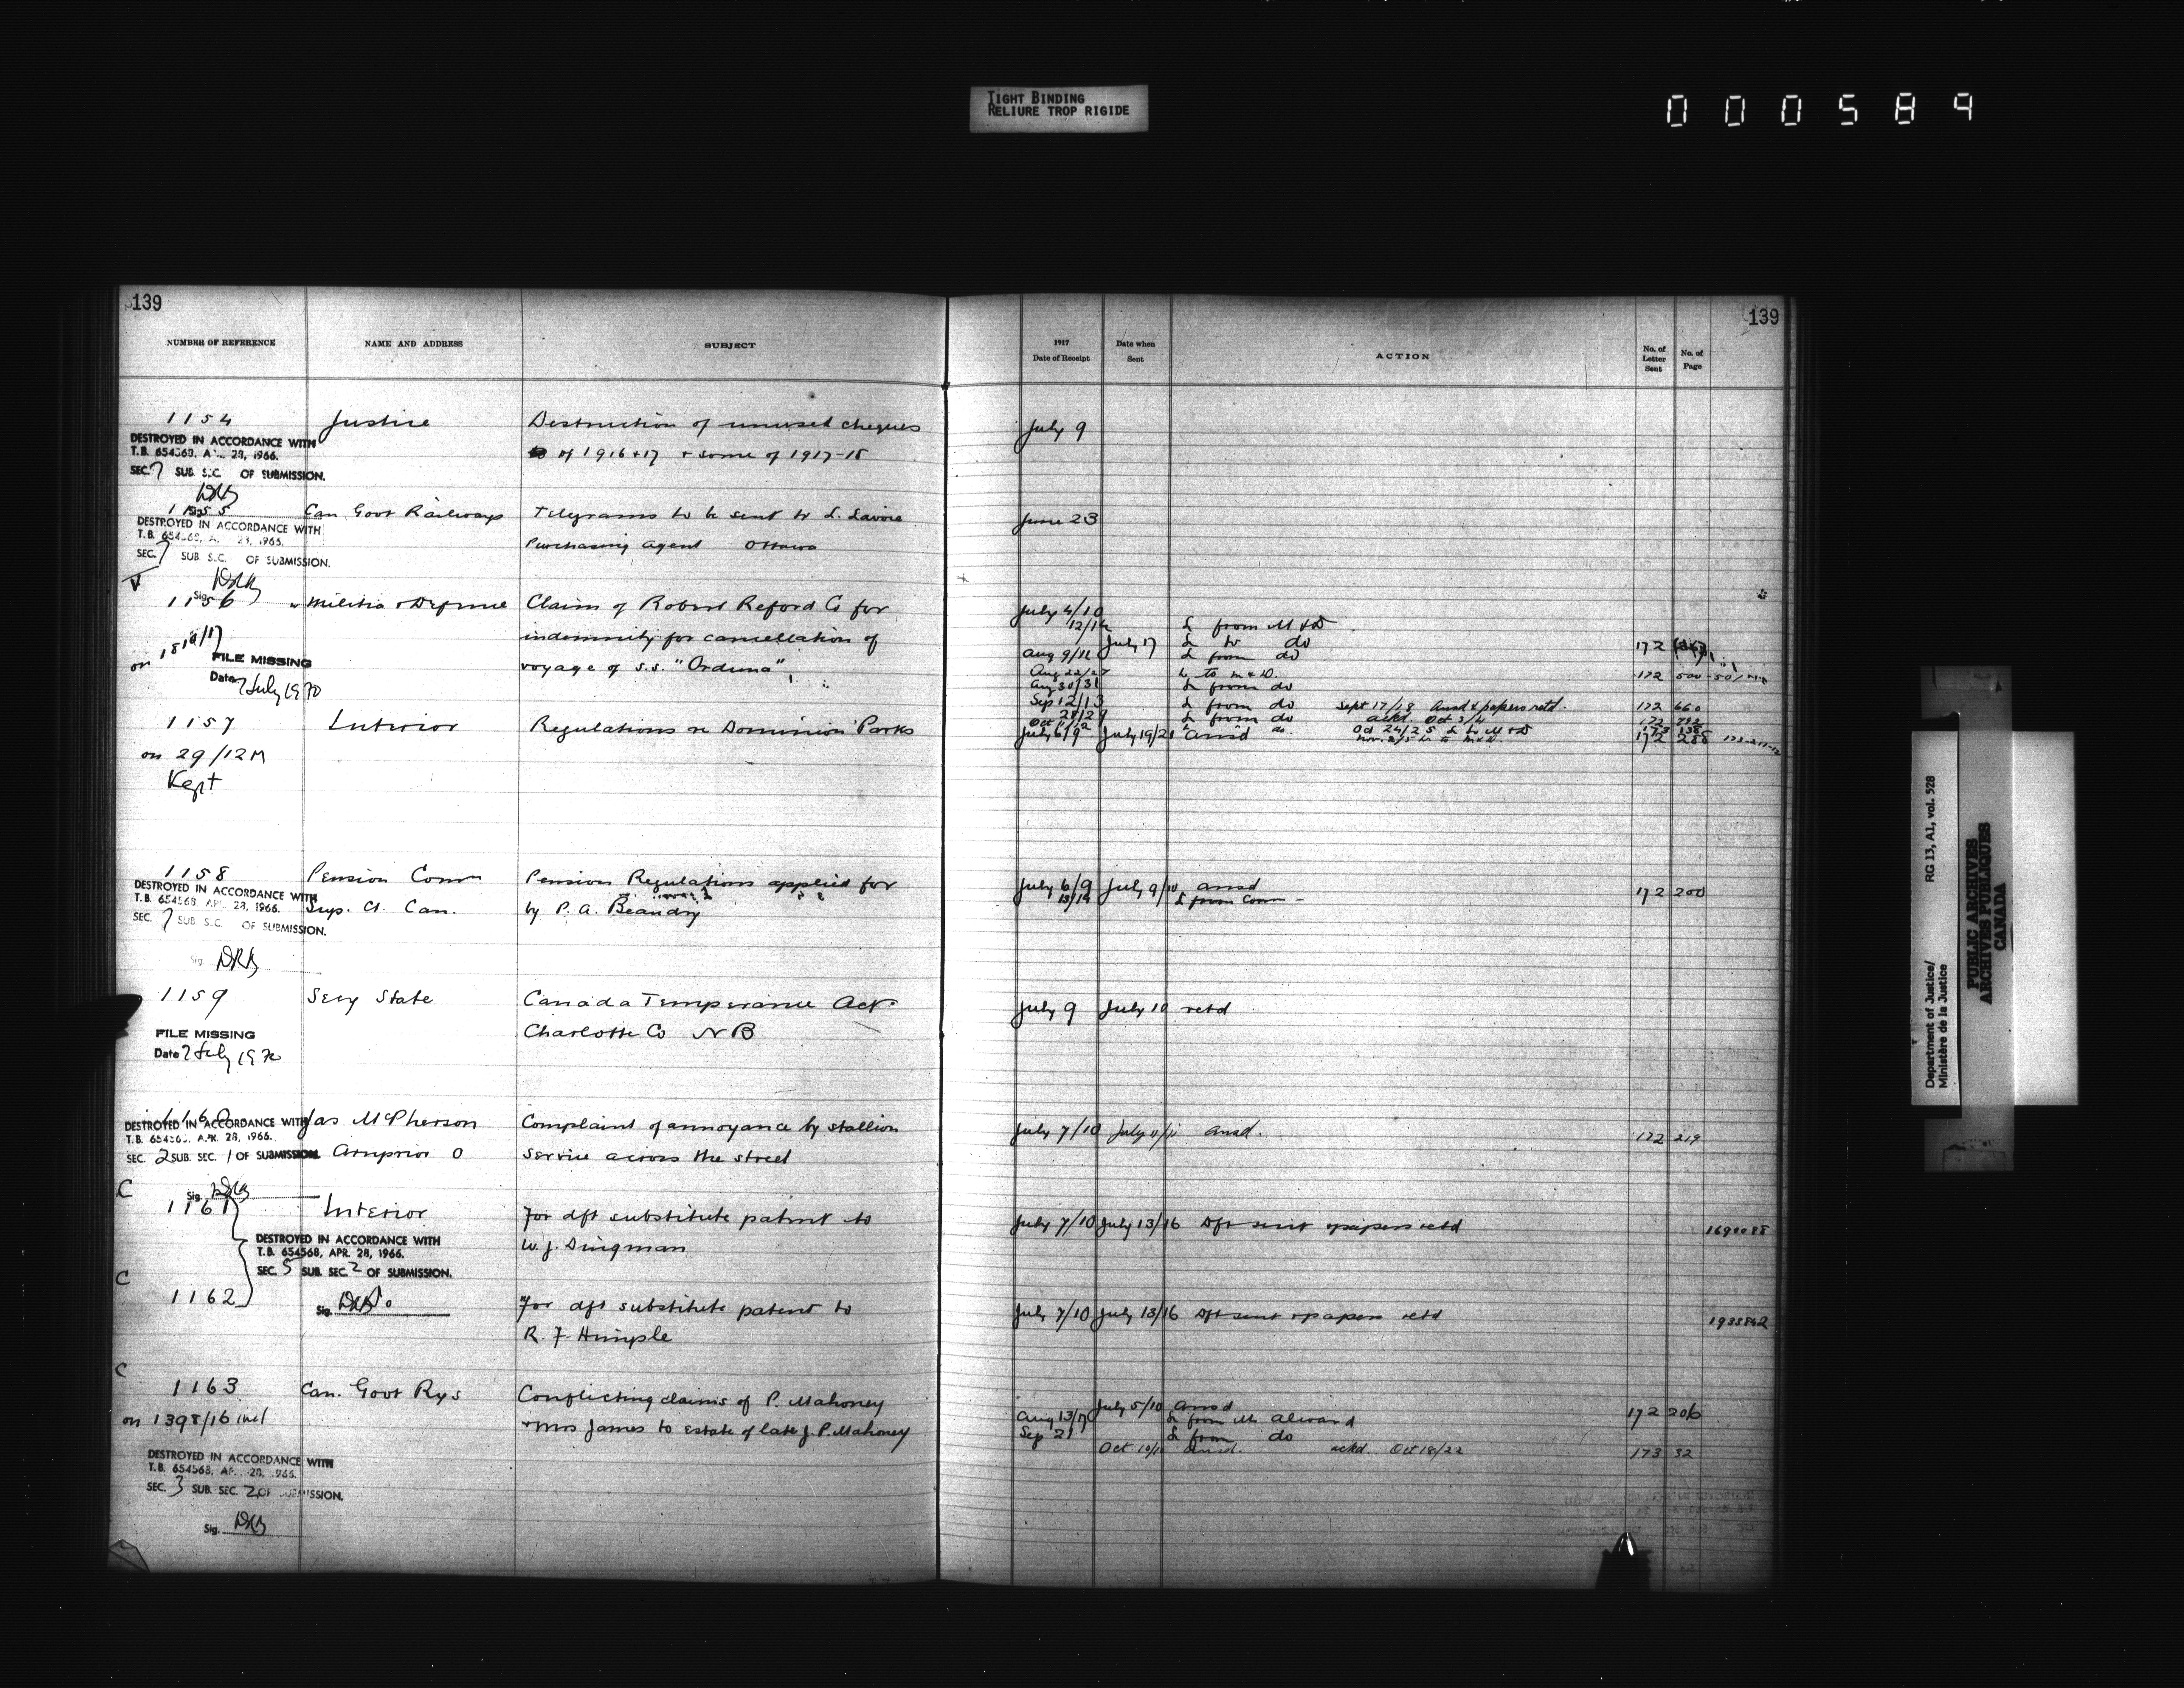 TIGHT BINDING
RELIURE TROP RIGIDE
000589
139
139
NUMBER OF REFERENCE
NAME AND ADDRESS
SUBJECT
1917
Date of Receipt
Date when
Sent
ACTION
No. of
Letter
Sent
No. of
Page
1154 Justice Destruction of unused cheques July 9
of 1916+17 + some of 1917-18
DESTROYED IN ACCORDANCE WITH
T.B. 654568, 28, 1966.
SEC. 7 SUB. SEC. OF SUBMISSION.
DRB
1155 Can Govt Railways Telegrams to be sent to L. Lavoie June 23
Purchasing agent Ottawa
DESTROYED IN ACCORDANCE WITH
SEC. 7 SUB. SEC. OF SUBMISSION.
Sig. DRB
1156 Militia & Defence Claim of Robert Reford Co for July 4/10
12/14 L from M & D
indemnity for cancellation of July 17 L to do 172
Aug 9/11 L from do
voyage of S.S. "Orduna" Aug 22/27 L to M & D. 172 500
on 18
FILE MISSING
Date 7 July 1970
Aug 30/31 L from do
Sep 12/13 L from do Sept 17/18 Ansd & papers retd. 172 660
28/29 L from do ackd. Oct 3/4 172 792
Oct 11/12 do. Oct 24/25 L to M & D 173 138
1157 Interior Regulations re Dominion Parks July 6/9 July 19/21 ansd 172 288
on 29/12 M
Kept
1158 Pension Comm Pension Regulations applied for July 6/9 July 9/10 ansd 172 200
Sup. Ct. Can. by P. A. Beaudry 13/14 L from Comm
DESTROYED IN ACCORDANCE WITH
T.B. 654568 APR. 28, 1966.
SEC. 7 SUB. SEC. OF SUBMISSION.
Sig. DRB
1159 Secy State Canada Temperance Act July 9 July 10 retd
Charlotte Co N B
FILE MISSING
Date 7 July 1970
1160 Jas McPherson Complaint of annoyance by stallion July 7/10 July 11/11 ansd. 172 219
Arnprior O service across the street
DESTROYED IN ACCORDANCE WITH
T.B. 654568, APR. 28, 1966.
SEC. 2 SUB. SEC. 1 OF SUBMISSION.
Sig. DRB
C
1161 Interior For dft substitute patent to July 7/10 July 13/16 Dft sent & papers retd 1690088
W. J. Dingman
DESTROYED IN ACCORDANCE WITH
T.B. 654568, APR. 28, 1966.
SEC. 5 SUB. SEC. 2 OF SUBMISSION.
C
1162 Do For dft substitute patent to July 7/10 July 13/16 Dft sent & papers retd 1935842
Sig. DRB
R. F. Himple
C
1163 Can. Govt Rys Conflicting claims of P. Mahoney July 5/10 ansd 172 206
on 1398/16 incl & Mrs James to estate of late J. P. Mahoney Aug 13/17 L from Mr Alward
Sep 21 L from do
Oct 10/10 ansd. ackd. Oct 18/22 173 32
DESTROYED IN ACCORDANCE WITH
T.B. 654568, 28, 1966.
SEC. 3 SUB. SEC. 2 OF SUBMISSION.
Sig. DRB
Department of Justice/
Ministère de la Justice
RG 13, A1, vol. 528
PUBLIC ARCHIVES
ARCHIVES PUBLIQUES
CANADA